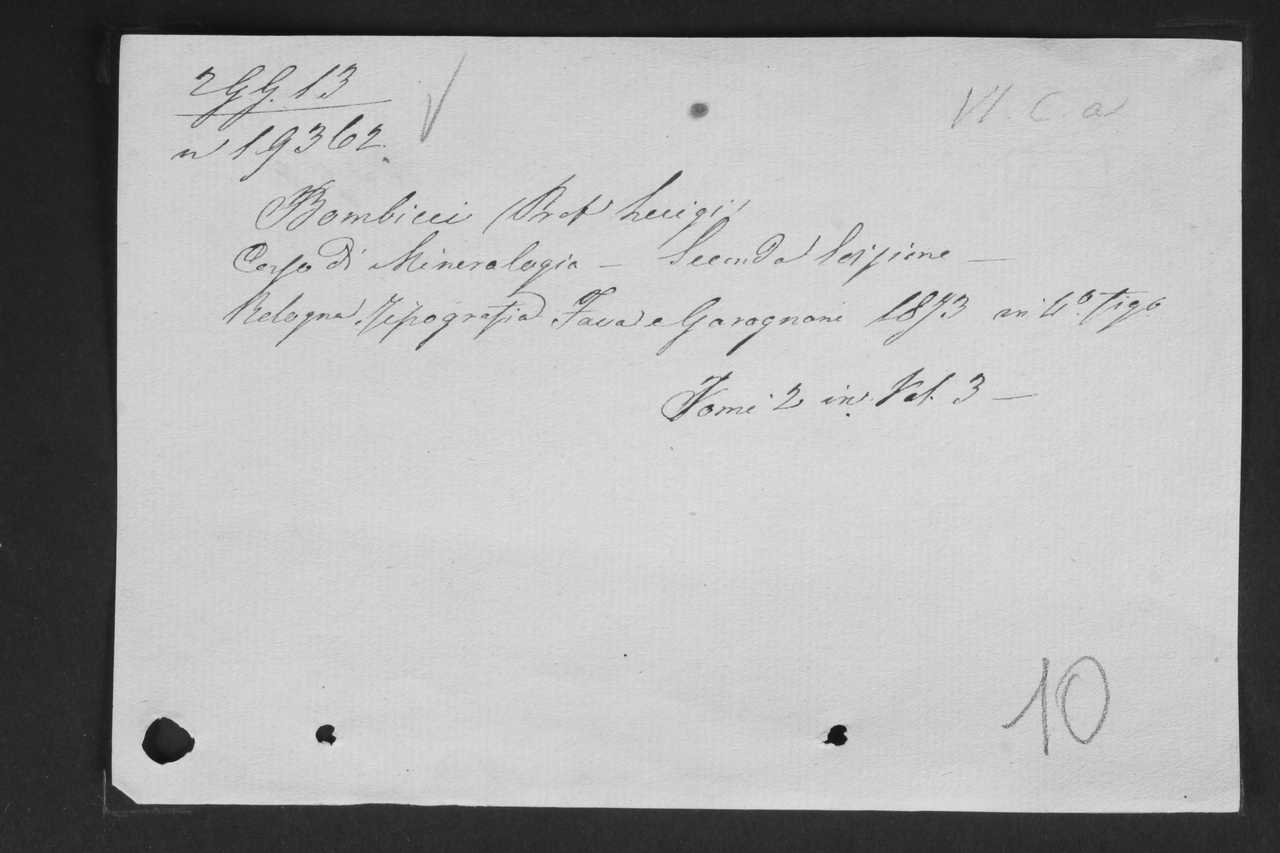 2 G G. 13
VI. C. a
n 19362.
Bombicci Prof Luigi
Corso di Mineralogia – Seconda Edizione –
Bologna Tipografia Fava e Garagnani 1873 in 4º. fig.º
Tomi 2 in Vol. 3 –
10